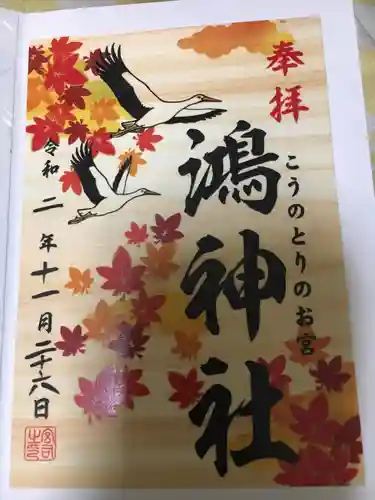 奉拝
こうのとりのお宮
鴻神社
令和二年十一月二十八日
宮司之印